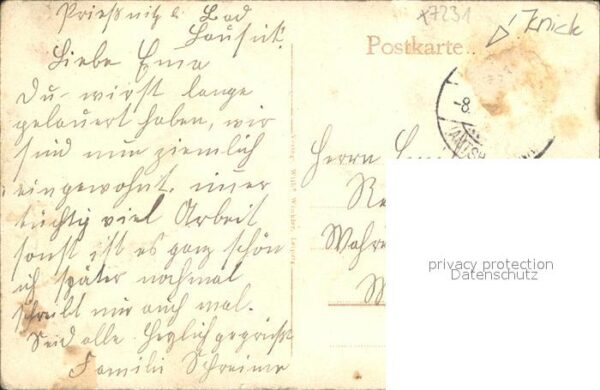 Prießnitz b. Bad
Lausick.
Liebe Ema
Du wirst lange
gelauert haben, wir
sind nun ziemlich
eingewohnt. immer
tüchtig viel Arbeit
sonst ist es ganz schön
ich später nochmal
schreibt mir auch mal.
Seid alle herzlich gegrüßt
Familie Schreime
x7231
Knick
Postkarte
-8.
Herrn
privacy protection
Datenschutz